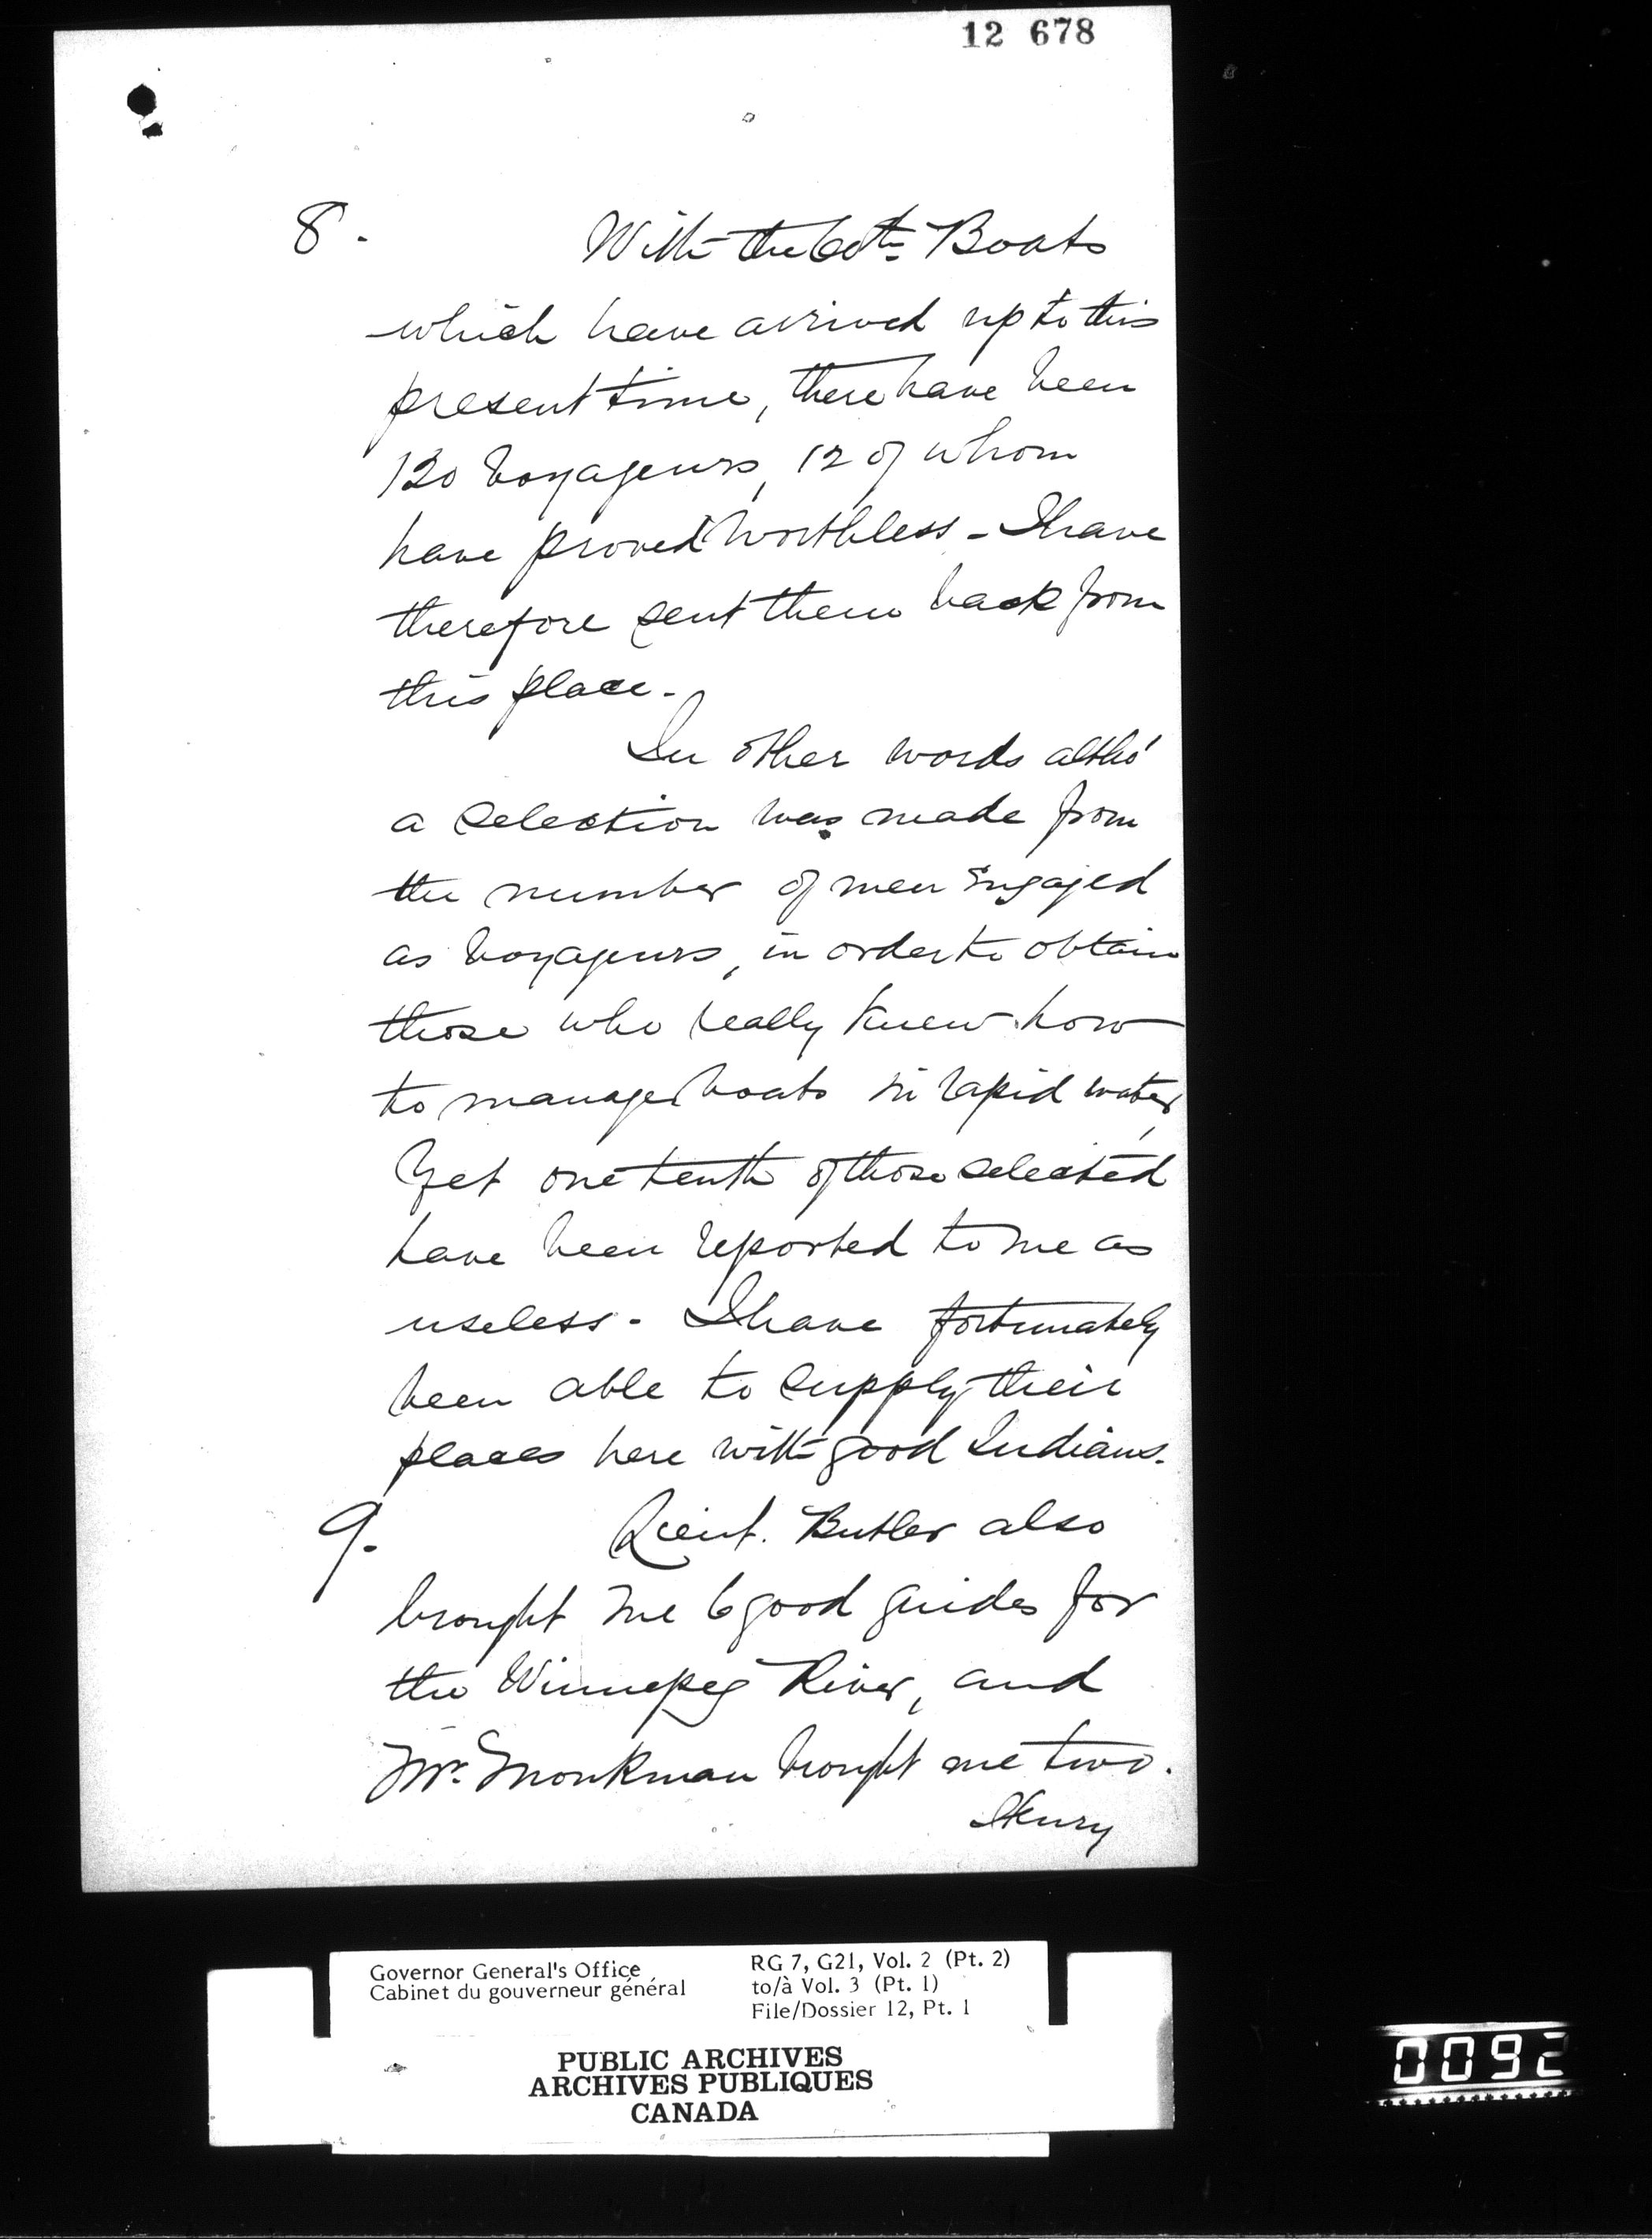 12 678
8. With the 60th Boats
which have arrived up to this
present time, there have been
120 Voyageurs, 12 of whom
have proved worthless - I have
therefore sent them back from
this place.
In other words altho'
a selection was made from
the number of men engaged
as Voyageurs, in order to obtain
those who really knew how
to manage boats in rapid water,
Yet one tenth of those selected
have been reported to me as
useless. I have fortunately
been able to supply their
places here with good Indians.
9. Lieut. Butler also
brought me 6 good guides for
the Winnepeg River, and
Mr. Monkman brought me two.
Henry
Governor General's Office
Cabinet du gouverneur général
RG 7, G21, Vol. 2 (Pt. 2)
to/à Vol. 3 (Pt. 1)
File/Dossier 12, Pt. 1
PUBLIC ARCHIVES
ARCHIVES PUBLIQUES
CANADA
0092